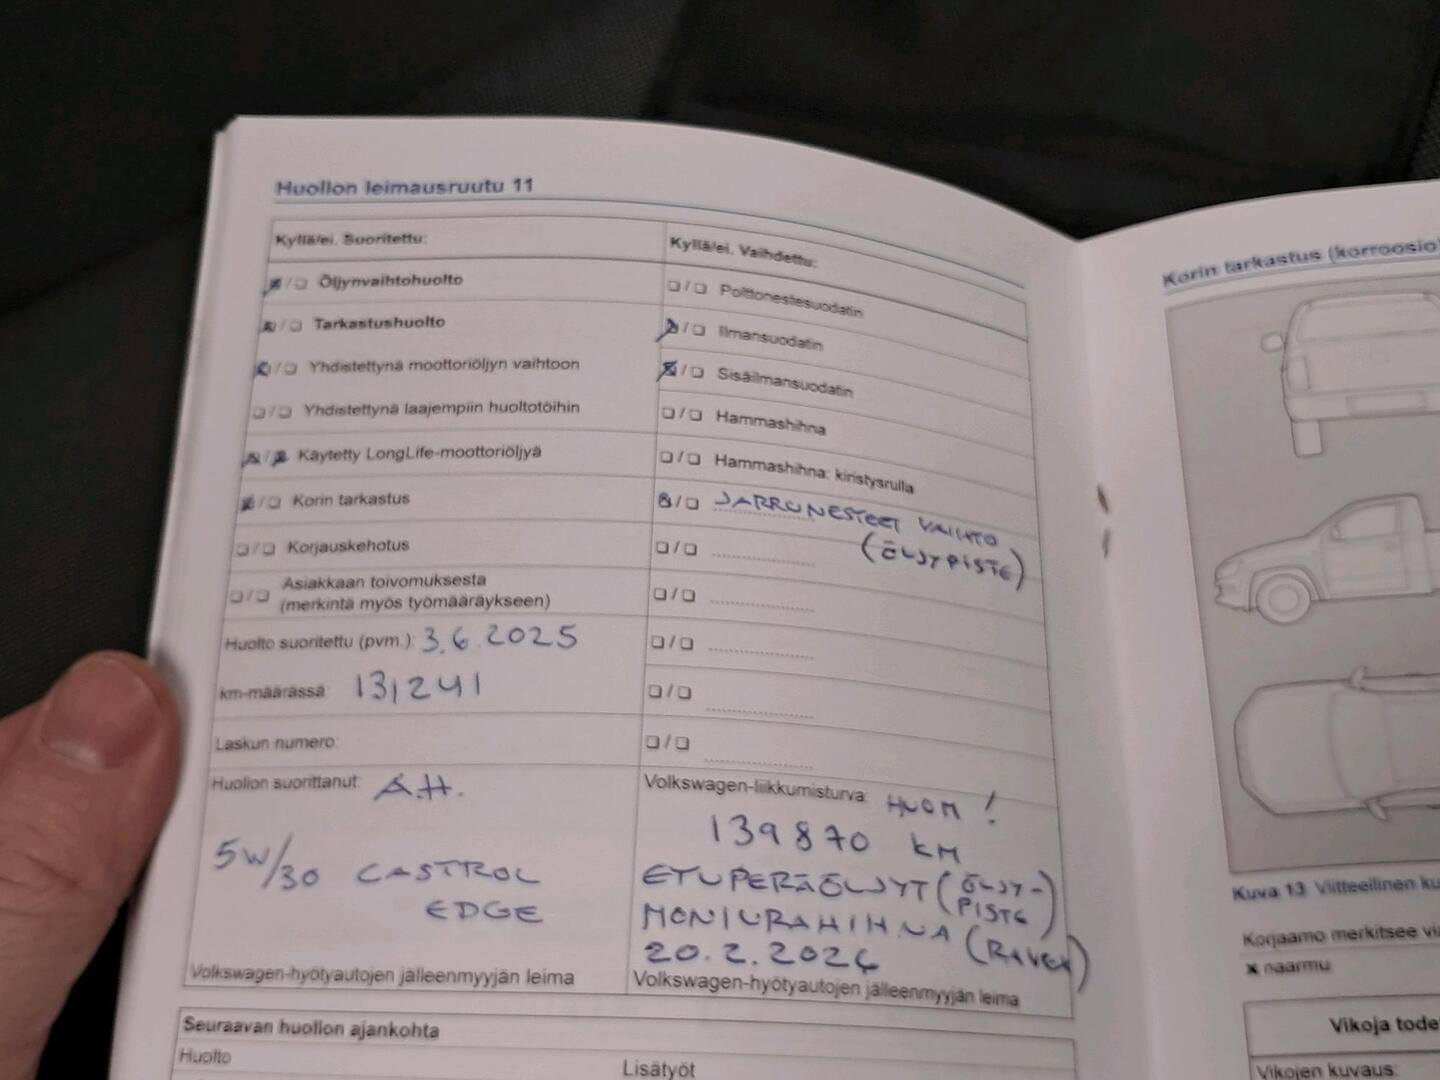 Huollon leimausruutu 11
Kyllä/ei. Suoritettu:
☒/☐ Öljynvaihtohuolto
☒/☐ Tarkastushuolto
☒/☐ Yhdistettynä moottoriöljyn vaihtoon
☐/☐ Yhdistettynä laajempiin huoltotöihin
☒/☒ Käytetty LongLife-moottoriöljyä
☒/☐ Korin tarkastus
☐/☐ Korjauskehotus
☐/☐ Asiakkaan toivomuksesta
(merkintä myös työmääräykseen)
Huolto suoritettu (pvm.): 3.6.2025
km-määrässä: 131241
Laskun numero:
Huollon suorittanut: A.H.
5W/30 CASTROL
EDGE
Volkswagen-hyötyautojen jälleenmyyjän leima
Kyllä/ei. Vaihdettu:
☐/☐ Polttonestesuodatin
☒/☐ Ilmansuodatin
☒/☐ Sisäilmansuodatin
☐/☐ Hammashihna
☐/☐ Hammashihna: kiristysrulla
☒/☐ JARRUNESTEET VAIHTO
☐/☐ (ÖLJYPISTE)
☐/☐
☐/☐
☐/☐
☐/☐
Volkswagen-liikkumisturva: HUOM!
139870 KM
ETUPERÄÖLJYT (ÖLJY-
PISTE)
MONIURAHIHNA (RAVEX)
Volkswagen-hyötyautojen jälleenmyyjän leima
Seuraavan huollon ajankohta
Huolto
Lisätyöt
Korin tarkastus (korroosio)
Kuva 13 Viitteellinen
Korjaamo merkitsee
x naarmu
Vikoja
Vikojen kuvaus: